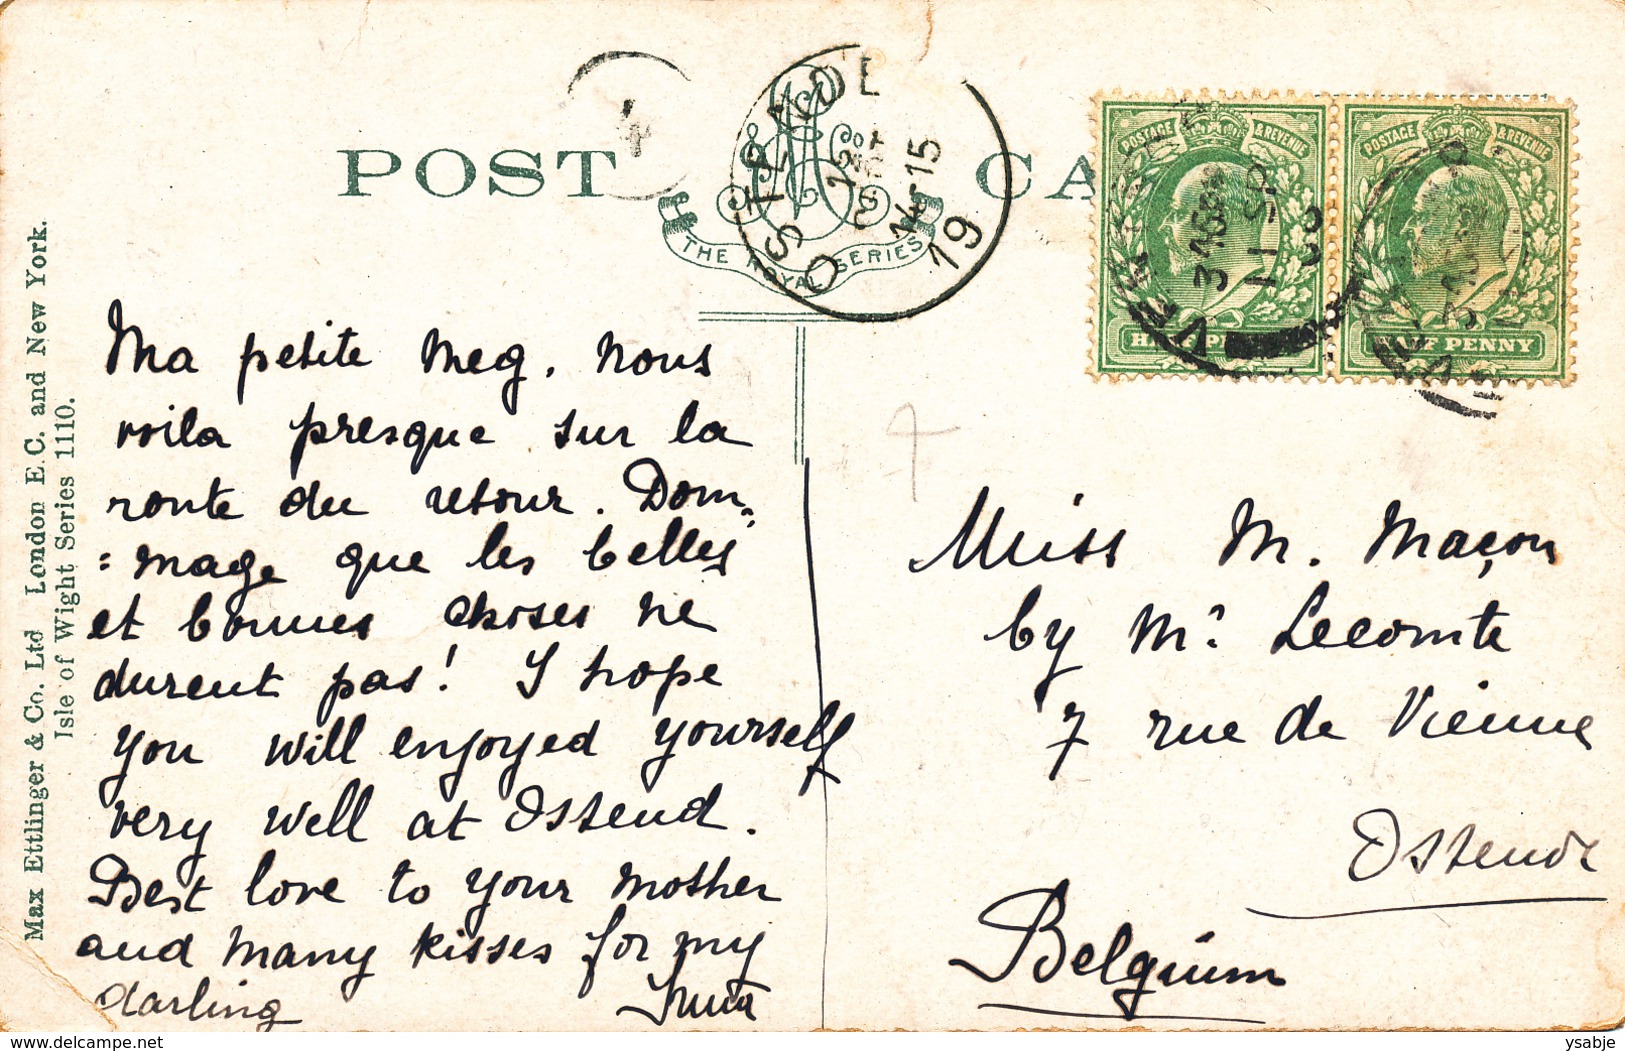 POST CA
THE ROYAL SERIES
OSTENDE
12
14-15
19
POSTAGE & REVENUE
POSTAGE & REVENUE
HALF PENNY
HALF PENNY
11 SP
Max Ettlinger & Co. Ltd London E.C. and New York.
Isle of Wight Series 1110.
Ma petite Meg. Nous
voila presque sur la
route du retour. Dom-
=mage que les belles
et bonnes choses ne
durent pas! I hope
you will enjoyed yourself
very well at Ostend.
Best love to your mother
and many kisses for my
darling
Miss M. Maçon
by Mr. Lecomte
7 rue de Vienne
Ostende
Belgium
delcampe.net
ysabje